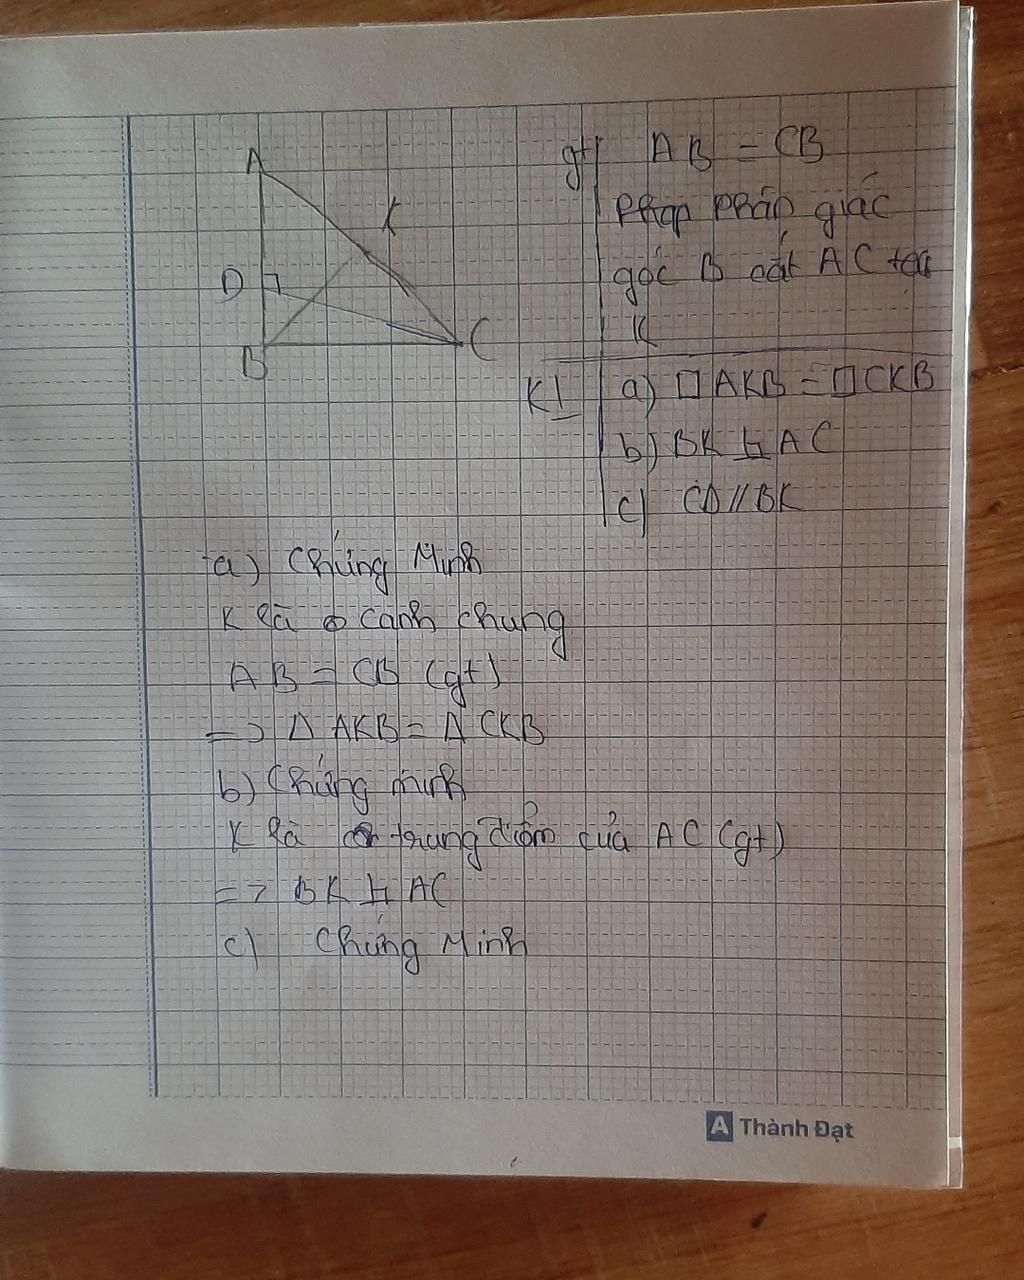 A
K
D
B
C
gt AB = CB
phan phân giác
góc B cắt AC tại
K
Kl a) □AKB = □CKB
b) BK ⊥ AC
c) CD // BK
a) Chứng Minh
K là cạnh chung
AB = CB (gt)
=> Δ AKB = Δ CKB
b) Chứng minh
K là trung điểm của AC (gt)
=> BK ⊥ AC
c) Chứng Minh
A Thành Đạt